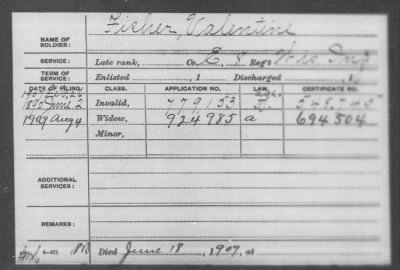 NAME OF SOLDIER: Fisher, Valentine
SERVICE: Late rank, Co. E, 8 Reg't Inf
TERM OF SERVICE: Enlisted , 1 Discharged , 1
DATE OF FILING. CLASS. APPLICATION NO. LAW. CERTIFICATE NO.
age.
1890 June 2 Invalid, 779153 548.745
1909 Aug 4 Widow, 924985 a 694504
Minor,
ADDITIONAL SERVICES:
REMARKS:
Died June 18, 1909, at